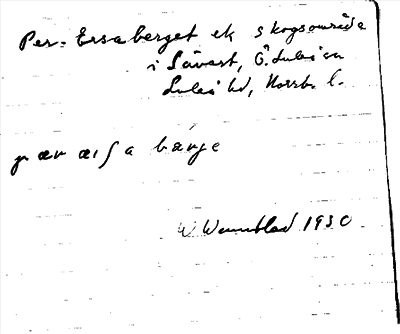 Per-Ersaberget ek skogsområde
i Sävast, Ö. Luleå sn
Luleå hd, Norrb. l.
bärje
W Wennblad 1930